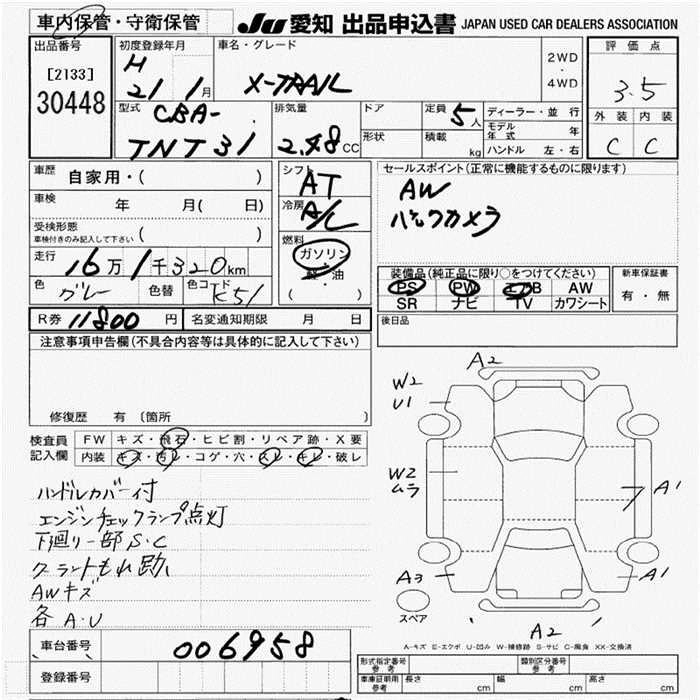 車内保管・守衛保管
JU 愛知 出品申込書 JAPAN USED CAR DEALERS ASSOCIATION
出品番号
[2133]
30448
初度登録年月
H
21 1月
車名・グレード
X-TRAIL
2WD
・
4WD
評価点
3.5
外装 内装
C C
型式
CBA-
TNT31
排気量
2.48 CC
ドア
形状
定員 5人
積載 kg
ディーラー・並行
モデル年式 年
ハンドル 左・右
車歴 自家用・( )
車検 年 月( 日)
受検形態
車検付きのみ記入して下さい ( )
走行 16万1千320km
色 グレー 色替 色コード K51
シフト AT
冷房 A/C
燃料
ガソリン
軽・油
( )
セールスポイント(正常に機能するものに限ります)
AW
バックカメラ
装備品(純正品に限り○をつけてください)
PS PW エアB AW
SR ナビ TV カワシート
新車保証書
有・無
R券 11800 円 名変通知期限 月 日
後日品
注意事項申告欄(不具合内容等は具体的に記入して下さい)
修復歴 有 〔箇所
検査員記入欄
FW キズ・飛石・ヒビ割・リペア跡・X要
内装 キズ・汚レ・コゲ・穴・スレ・キレ・破レ
ハンドルカバー付
エンジンチェックランプ点灯
下廻り一部S・C
クーラントもれ跡
AWキズ
各A・U
A2
W2
U1
W2
ムラ
A1
A3
A1
スペア
A2
A-キズ E-エクボ U-凹み W-補修跡 S-サビ C-腐食 XX-交換済
車台番号 006958
登録番号
形式指定番号 参考
類別区分番号 参考
車庫証明用 参考 長さ cm 幅 cm 高さ cm